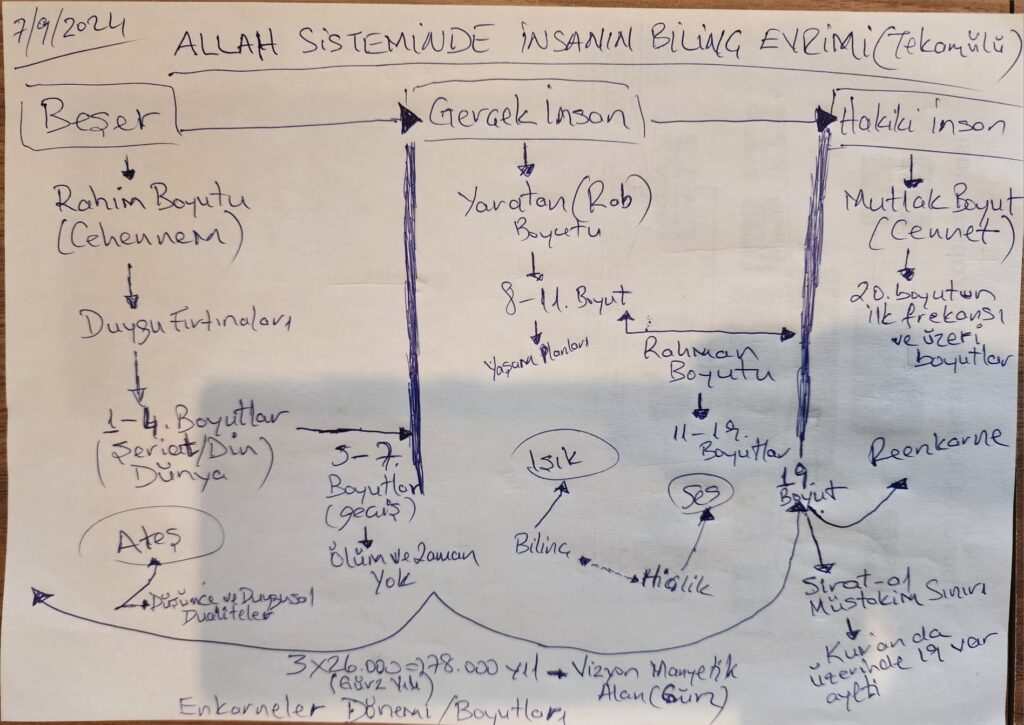 7/9/2024
ALLAH SİSTEMİNDE İNSANIN BİLİNÇ EVRİMİ (Tekamülü)
Beşer
Gerçek İnsan
Hakiki İnsan
Rahim Boyutu
(Cehennem)
Duygu Fırtınaları
1-4. Boyutlar
(Şeriat/Din)
Dünya
5-7.
Boyutlar
(geçiş)
Ölüm ve Zaman
Yok
Ateş
Düşünce ve Duygusal
Dualiteler
Yaratan (Rab)
Boyutu
8-11. Boyut
Yaşam Planları
Rahman
Boyutu
11-19.
Boyutlar
Işık
Ses
Bilinç
Hiçlik
Mutlak Boyut
(Cennet)
20. boyutun
ilk frekansı
ve üzeri
boyutlar
19.
Boyut
Reenkarne
Sırat-al
Müstakim Sınırı
Kur'anda
üzerinde 19 var
ayeti
3x26.000=278.000 yıl → Vizyon Manyetik
(Gürz Yılı)
Alan (Gürz)
Enkarneler Dönemi/Boyutları